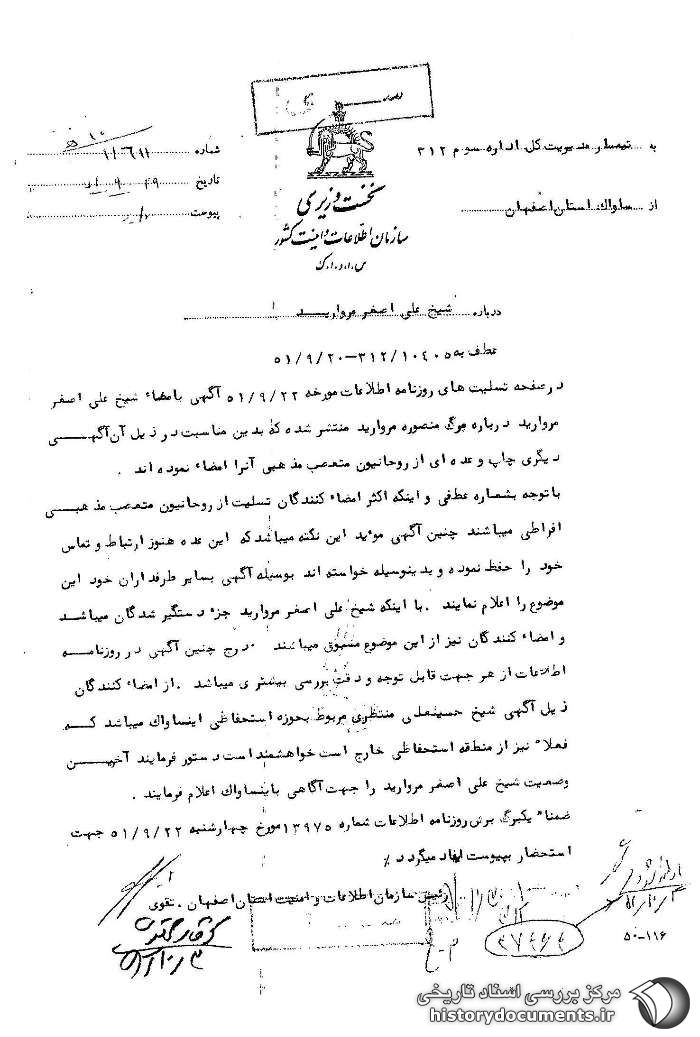 ســـــری
به تیمسار مدیریت کل اداره سوم ۳۱۲
از ساواک استان اصفهان
نخست وزیری
سازمان اطلاعات و امنیت کشور
س.ا.و.ا.ک
شماره
تاریخ
پیوست
درباره شیخ علی اصغر مروارید
عطف به ۳۱۲/۱۰۴۰۵–۵۱/۹/۲۰
در صفحه تسلیت های روزنامه اطلاعات مورخه ۵۱/۹/۲۲ آگهی بامضاء شیخ علی اصغر
مروارید درباره مرگ منصوره مروارید منتشر شده که بدین مناسبت در ذیل آن آگهی
دیگری چاپ و عده ای از روحانیون متعصب مذهبی آنرا امضاء نموده اند .
با توجه بشماره عطفی و اینکه اکثر امضاء کنندگان تسلیت از روحانیون متعصب مذهبی
افراطی میباشند چنین آگهی موید این نکته میباشد که این عده هنوز ارتباط و تماس
خود را حفظ نموده و بدینوسیله خواسته اند بوسیله آگهی بسایر طرفداران خود این
موضوع را اعلام نمایند . با اینکه شیخ علی اصغر مروارید جزء دستگیر شدگان میباشد
و امضاء کنندگان نیز از این موضوع مسبوق میباشند درج چنین آگهی در روزنامه
اطلاعات از هر جهت قابل توجه و دقت بررسی بیشتری میباشد . از امضاء کنندگان
ذیل آگهی شیخ حسینعلی منتظری مربوط بحوزه استحفاظی اینساواک میباشد که
فعلا نیز از منطقه استحفاظی خارج است خواهشمند است دستور فرمایند آخرین
وضعیت شیخ علی اصغر مروارید را جهت آگاهی باینساواک اعلام فرمایند .
ضمنا یکبرگ برش روزنامه اطلاعات شماره ۱۳۹۷۵ مورخ چهارشنبه ۵۱/۹/۲۲ جهت
استحضار بپیوست ایفاد میگردد ٪
رئیس سازمان اطلاعات و امنیت استان اصفهان . تقوی
۵۰-۱۱۶
مرکز بررسی اسناد تاریخی
historydocuments.ir